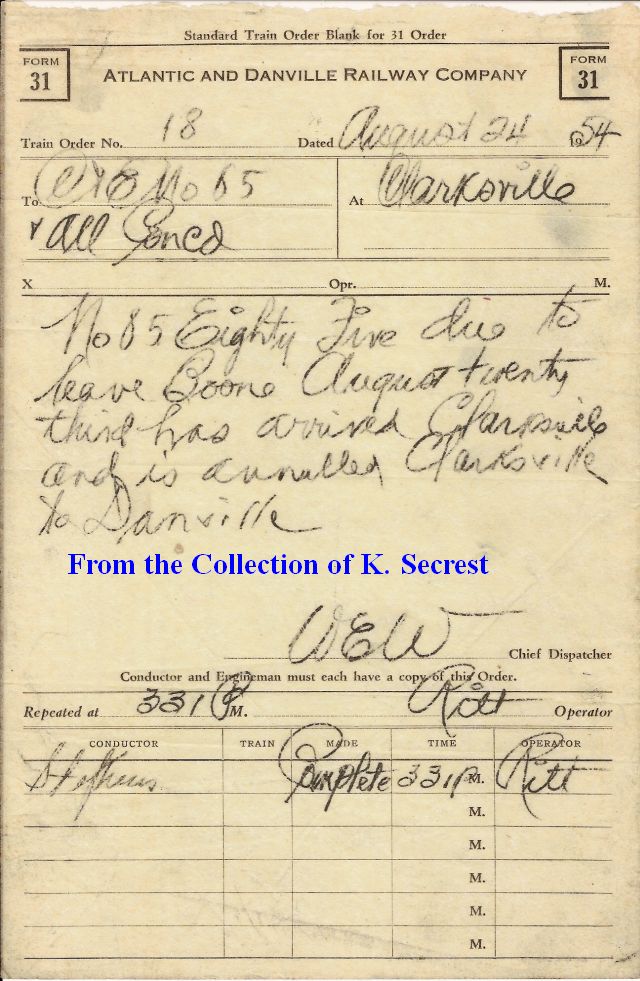 Standard Train Order Blank for 31 Order
FORM 31
ATLANTIC AND DANVILLE RAILWAY COMPANY
FORM 31
Train Order No. 18 Dated August 24 1954
To C&E No 85 At Clarksville
& All Concd
X Opr. M.
No 85 Eighty Five due to
leave Boone August twenty
third has arrived Clarksville
and is annulled Clarksville
to Danville
From the Collection of K. Secrest
WEW Chief Dispatcher
Conductor and Engineman must each have a copy of this Order.
Repeated at 331 P M. Ritt Operator
CONDUCTOR TRAIN MADE TIME OPERATOR
Stephens Complete 331P M. Ritt
M.
M.
M.
M.
M.